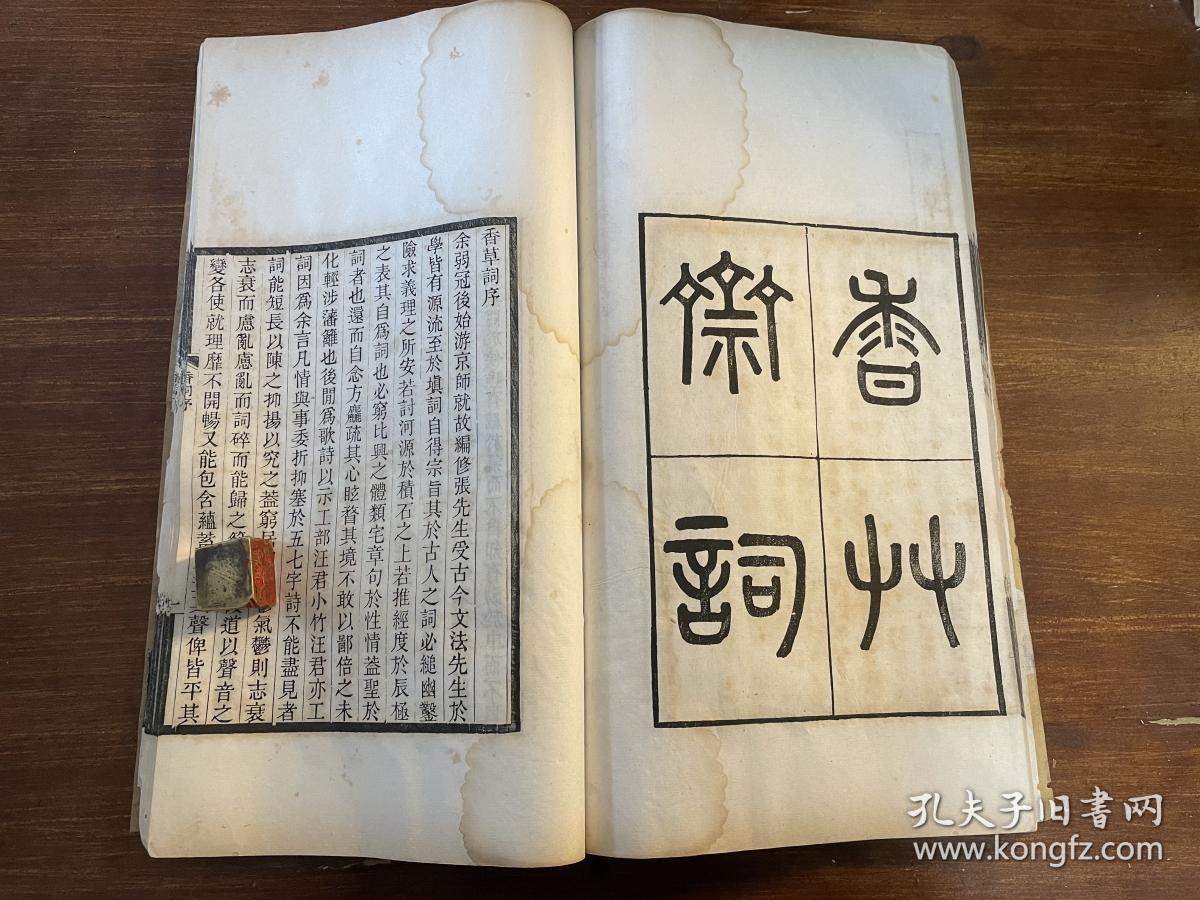 香艸
齋詞
香草詞序
余弱冠後始游京師就故編修張先生受古今文法先生於
學皆有源流至於填詞自得宗旨其於古人之詞必縋幽鑿
險求義理之所安若討河源於積石之上若推經度於辰極
之表其自爲詞也必窮比興之體類宅章句於性情葢聖於
詞者也還而自念方麤疏其心眩瞀其境不敢以鄙倍之未
化輕涉藩籬也後閒爲歌詩以示工部汪君小竹汪君亦工
詞因爲余言凡情與事委折抑塞於五七字詩不能盡見者
詞能短長以陳之抑揚以究之葢窮居氣鬱則志衰
志衰而慮亂慮亂而詞碎而能歸之道以聲音之
變各使就理靡不開暢又能包含蘊蓄聲俾皆平其
香詞序
一
孔夫子旧书网
www.kongfz.com